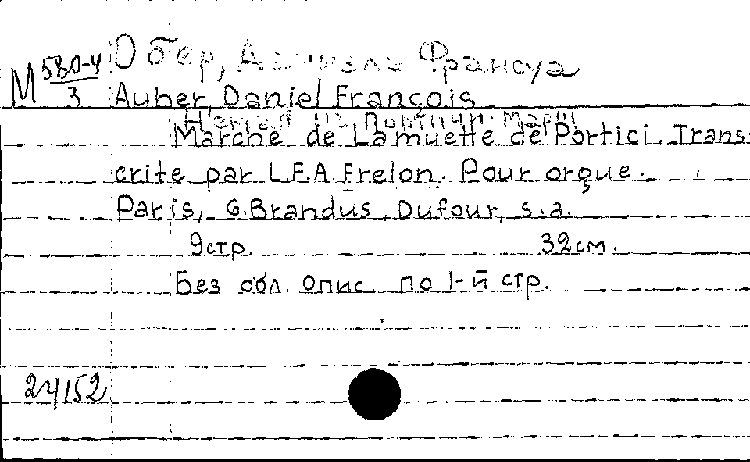 Обер, Даниэль Франсуа
М 580-4
3
Auber, Daniel François
Marche de La muette de Portici. Trans-
crite par L.F.A Frelon. Pour orgue.
Paris, G. Brandus, Dufour, s.a.
9стр. 32см.
Без обл. опис. по 1-й стр.
24152